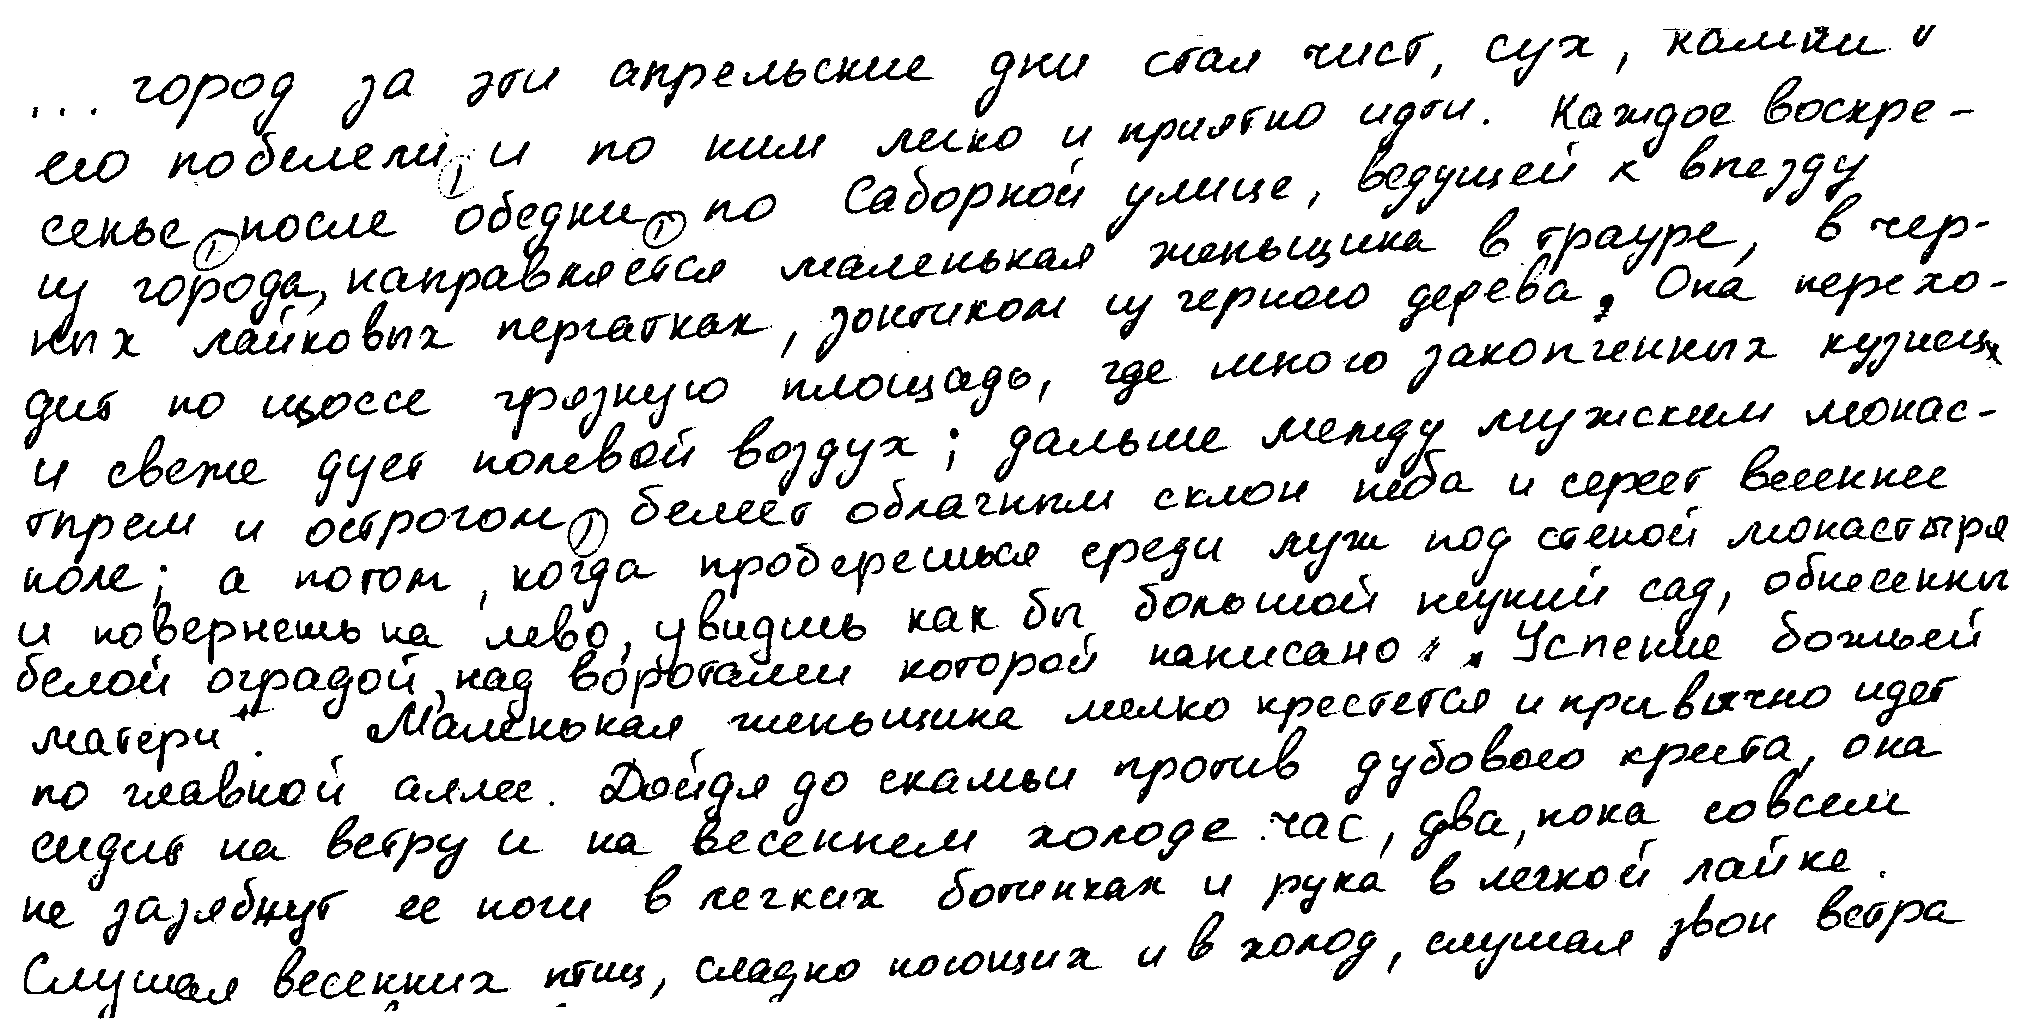 ... город за эти апрельские дни стал чист, сух, камни
его побелели, и по ним легко и приятно идти. Каждое воскре-
сенье, после обедни, по Саборной улице, ведущей к впезду
из города, направляется маленькая женьщина в трауре, в чер-
ных лайковых пергатках, зонтиком из черного дерева. Она перехо-
дит по щоссе грязную площадь, где много закопченных кузнец
и свеже дует полевой воздух; дальше между мужским монас-
тпрем и острогом, белеет облачным склон неба и сереет весеннее
поле; а потом, когда проберешься среди луж под стеной монастыря
и повернешь на лево, увидишь как бы большой неукий сад, обнесенны
белой оградой, над воротами которой написано „Успение божьей
матери". Маленькая женьщина мелко крестется и привычно идет
по главной аллее. Дойдя до скамьи против дубового креста, она
сидит на ветру и на весеннем холоде час, два, пока совсем
не зазябнут ее ноги в легких ботинках и рука в легкой лайке.
Слушая весенних птиц, сладко поющих и в холод, слушая звон ветра